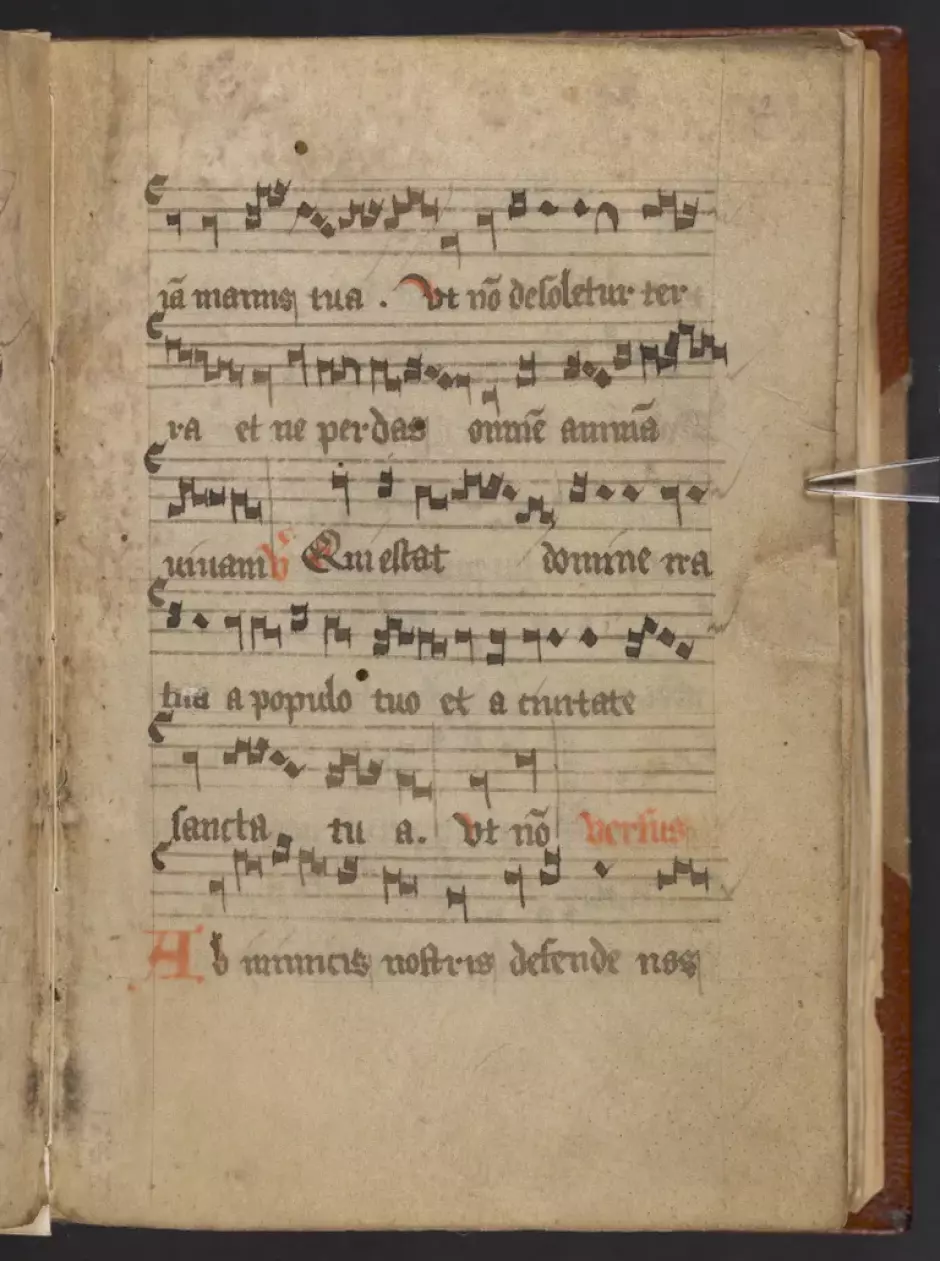 iā manus tua . Vt nō desoletur ter
ra et ne perdas omnē animā
uiuam ℣ Quiescat domine ira
tua a populo tuo et a ciuitate
sancta tu a. Vt nō Versus
Ab inimicis nostris defende nos